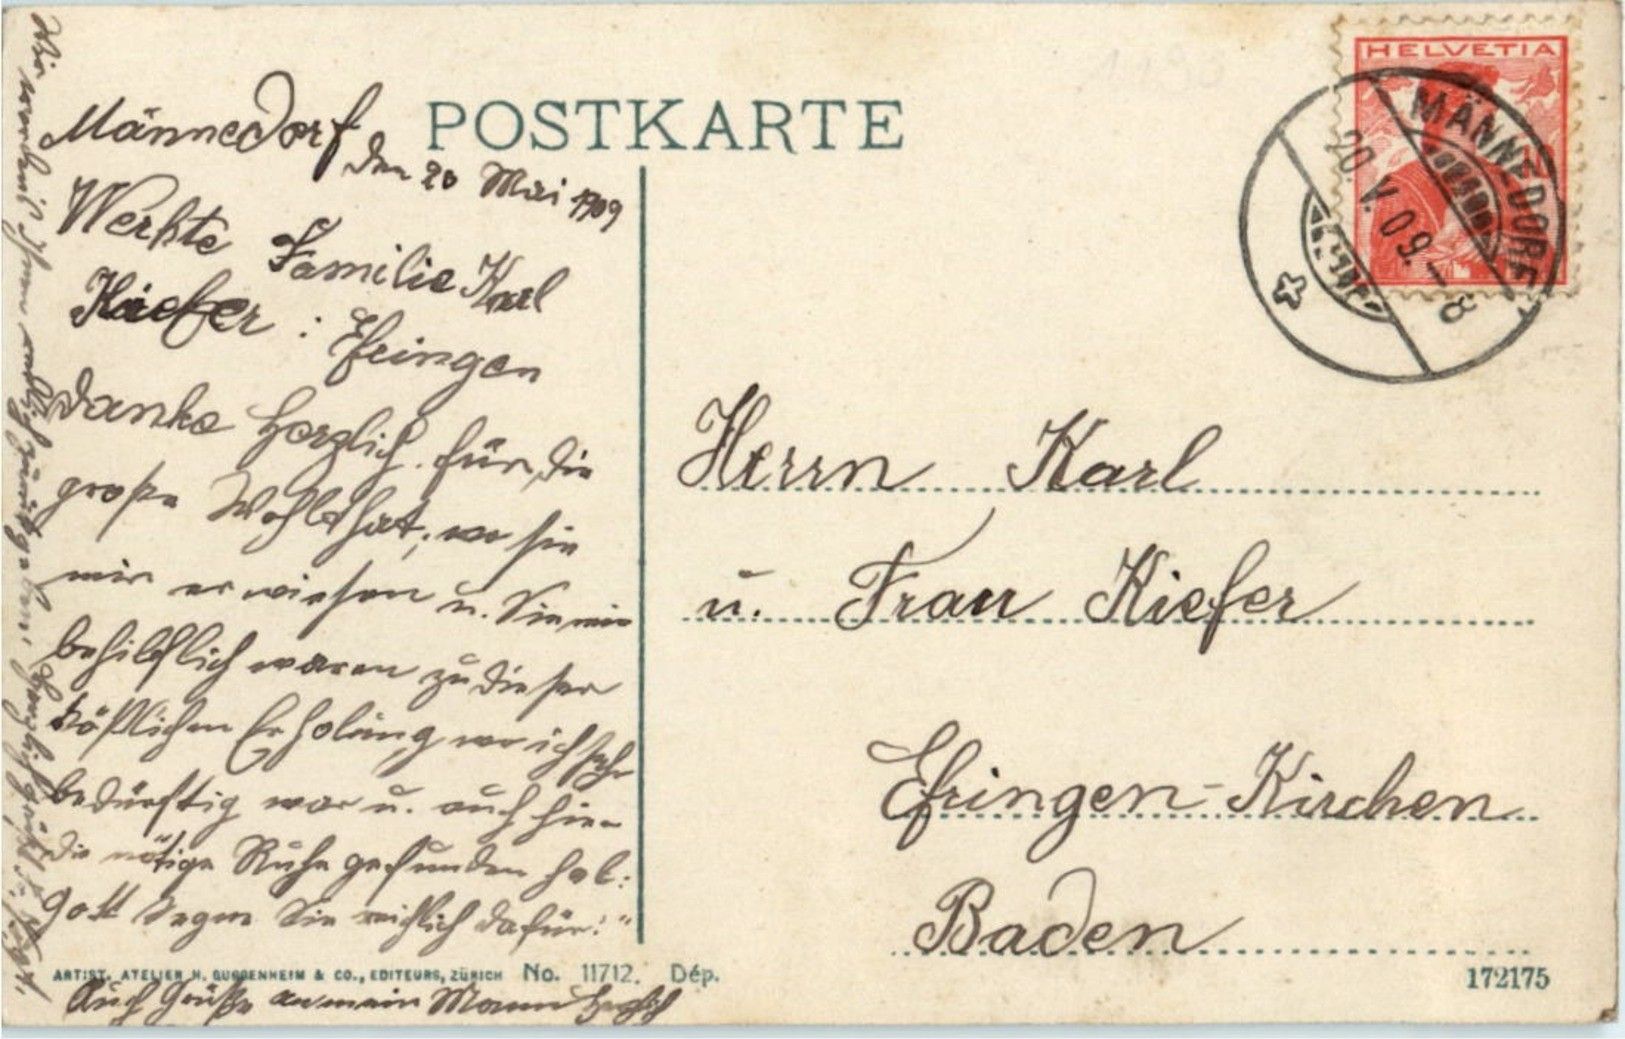 POSTKARTE
HELVETIA
MÄNNEDORF
20.V.09.–8
Männedorf
den 20 Mai 1909
Werhte Familie Karl
Kiefer: Efringen
Danke herzlich für die
große Wohlthat, wo sie
mir erwiesen u. Sie mir
behilflich waren zu dieser
köstlichen Erholung wo ich sehr
bedürftig war u. auch hier
die nötige Ruhe gefunden hab:
Gott segne Sie reichlich dafür!"
Auch Grüße an mein Mann herzlich
Herrn Karl
u. Frau Kiefer
Efringen-Kirchen
Baden
ARTIST. ATELIER H. GUGGENHEIM & CO., EDITEURS, ZÜRICH No. 11712. Dép.
172175